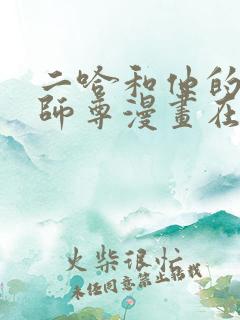 二哈和他的
師尊漫畫在
火柴很忙
未经同意禁止转载